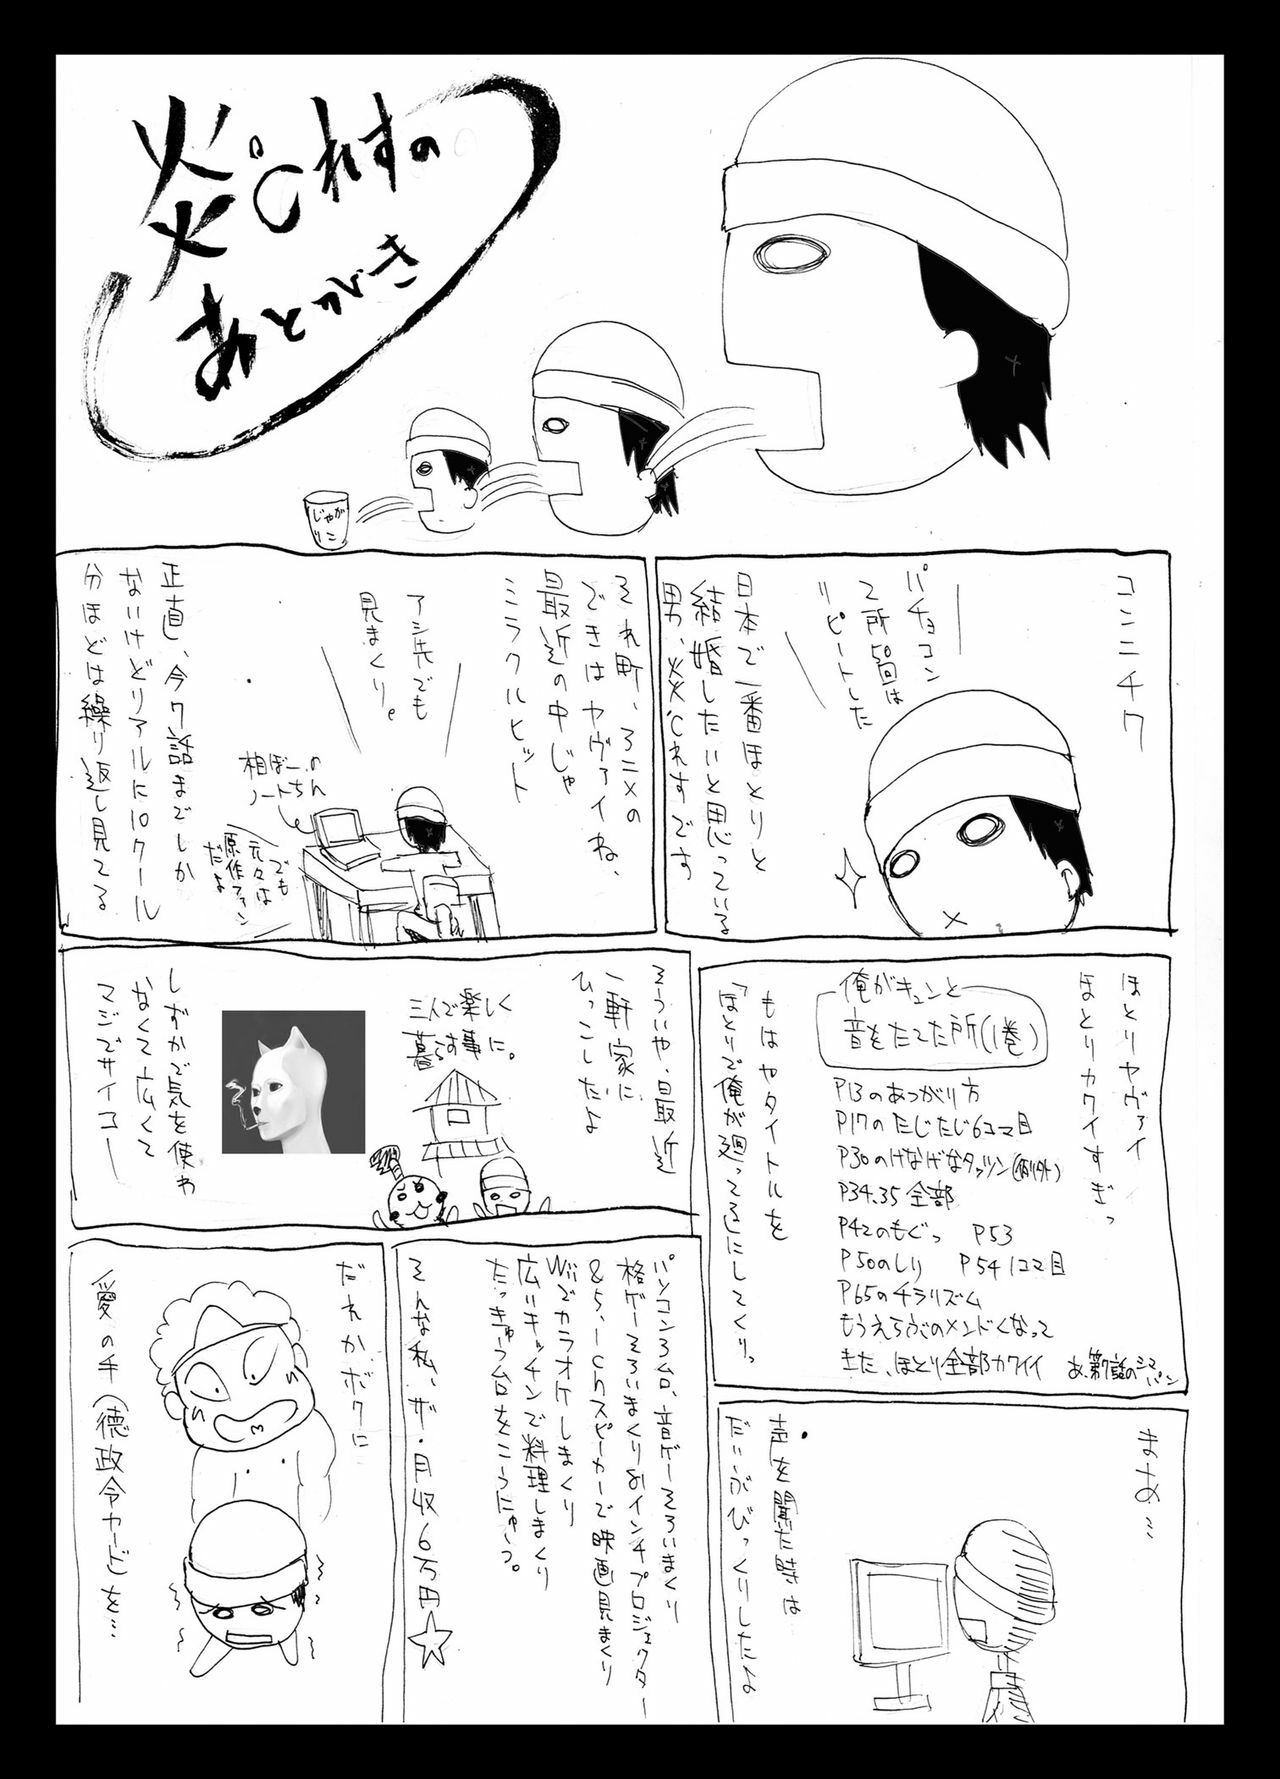 炎℃れすの
あとがき
じゃが
りこ
コンニチワ
パチョコン
2ヶ所50回は
リピートした
日本で一番ほとりと
結婚したいと思っている
男、炎℃れすです
それ町、アニメの
できはヤヴァイね、
最近の中じゃ
ミラクルヒット
アシ先でも
見まくり。
相ぼーちんの
ノート
でも
元々は
原作ファン
だよ
正直、今7話までしか
ないけどリアルに10クール
分ほどは繰り返し見てる
ほとりヤヴァイ
ほとりカワイすぎっ
俺がキュンと
音をたてた所(1巻)
P13のあっがり方
P17のたじたじ6コマ目
P30のけなげなタッツン(例外)
P34.35全部
P42のもぐっ P53
P50のしり P54 1コマ目
P65のチラリズム
もうえらぶのメンドくなって
きた、ほとり全部カワイイ
あ、第7話のシマパン
もはやタイトルを
「ほとりで俺が廻ってる」にしてくり。
そういや、最近
一軒家に、
ひっこしたよ
三人で楽しく
暮らす事に。
しずかで気を使わ
なくて広くて
マジでサイコー
まあ…
声を聞いた時は
だいぶびっくりしたよ
パソコン3台、音ゲーそろいまくり
格ゲーそろいまくり80インチプロジェクター
&5.1chスピーカーで映画見まくり
Wiiでカラオケしまくり
広いキッチンで料理しまくり
たっきゅう台をこうにゅうっ。
そんな私、ザ・月収6万円☆
だれかボクに
愛の手(徳政令カード)を…